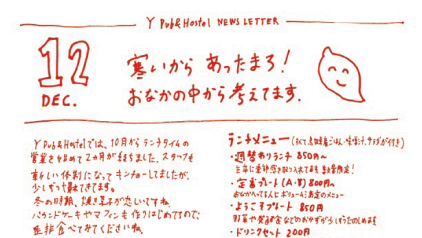 Y Pub&Hostel NEWS LETTER
12
DEC.
寒いから あったまろ!
おなかの中から考えてます.
Y Pub&Hostelでは、10月からランチタイムの
営業を始めて2ヵ月が経ちました。スタッフも
新しい体制になってキンチョーしてましたが、
少しずつ慣れてきてます。
冬の時期、焼き菓子が恋しいですね。
パウンドケーキやマフィンも作りはじめてるので
是非食べてみてくださいね。
ランチメニュー
・週替わりランチ 850円〜
・定番プレート(A・B) 800円〜
・ようこそプレート 850円
・ドリンクセット 200円